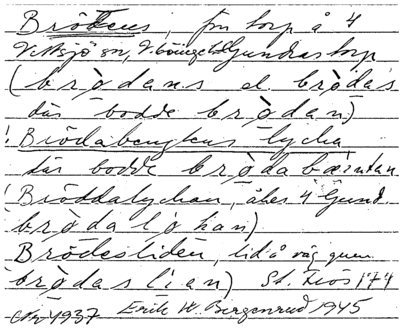 Brödens, f.n. torp å 4
Vittsjö sn, V. Göinge hd Gundrastorp
(brọdans el. brọdas
där bodde brọdan)
! Brödabengtens lycka
där bodde brọdabæintan
! Bröddalyckan, åker 4 Gund.
brọdalọkan)
Brödesliden, lid å väg genom
brọdaslian) St. Teös 174
Erik W. Bergenrud 1945